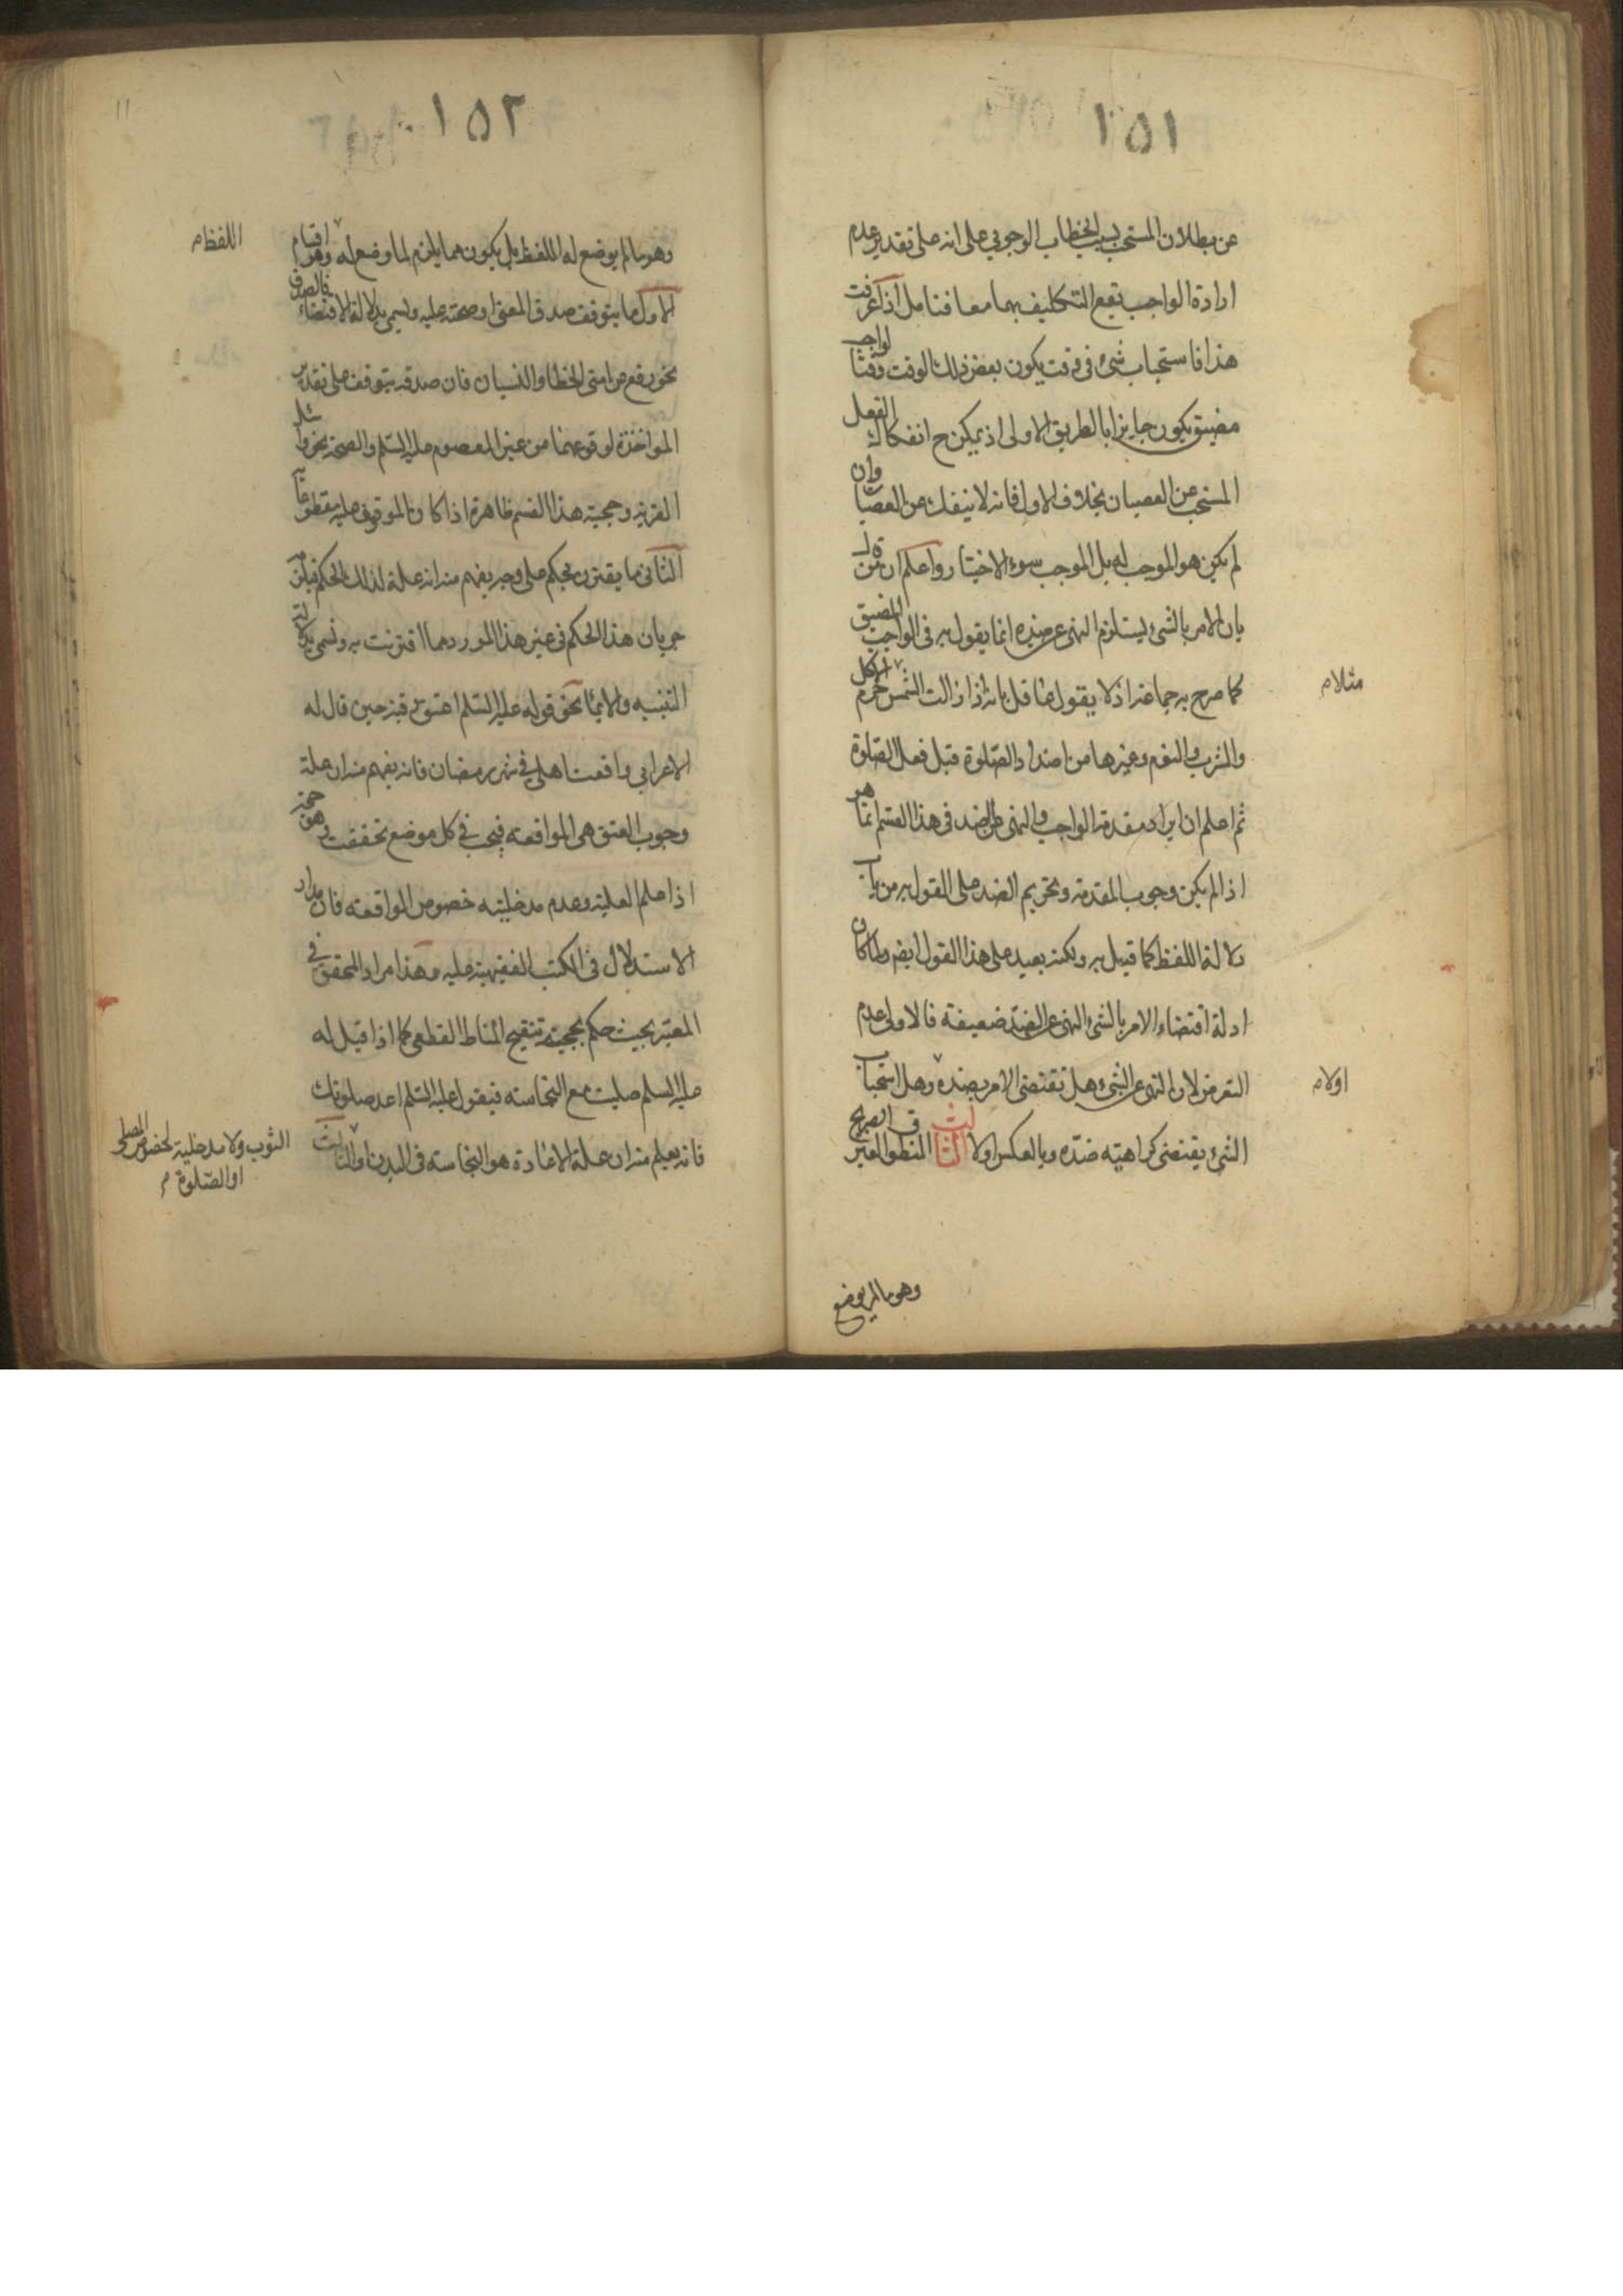 ١٥١
عن بطلان المستحب بسبب الخطاب الوجوبي على انه على تقدير عدم
ارادة الواجب تقع التكليف بهما معا فتامل اذا عرفت
هذا فاستحباب شئ فى وقت يكون بعض ذلك الوقت وقتا لواجب
مضيق يكون جايزا بالطريق الاولى اذ يمكن ح انفكاك الفعل
المستحب عن العصيان بخلاف الاول فانه لا ينفك عن العصيان وان
لم يكن هو الموجب له بل الموجب سوء الاختيار واعلم ان من قال
بان الامر بالشئ يستلزم النهى عن ضده انما يقول به فى الواجب المضيق
كما صرح به جماعة اذ لا يقول عاقل بانه اذا زالت الشمس حرم الاكل
مثلا م
والشرب والنوم وغيرها من اضداد الصلوة قبل فعل الصلوة
ثم اعلم ان ايراد مقدمة الواجب والنهى عن الضد فى هذا القسم انما هو
اذا لم يكن وجوب المقدمة وتحريم الضد على القول به من باب
دلالة اللفظ كما قيل به ولكنه بعيد على هذا القول ايضم ولما كان
ادلة اقتضاء الامر بالشئ النهى عن الضد ضعيفة فالاولى عدم
التعرض لان النهى عن الشئ هل تقتضى الامر بضده وهل استحباب
اولا م
الشئ يقتضى كراهية ضده وبالعكس اولا الثالث المنطوق الغير الصريح
وهو مالم يوضع
١٥٢
١١
وهو ما لم يوضع له اللفظ بل يكون مما يلزم لما وضع له وهو اقسام
اللفظ م
الاول ما يتوقف صدق المعنى او صحته عليه ويسمى بدلالة الاقتضاء فالصدق
نحو رفع عن امتى الخطا والنسيان فان صدقه يتوقف على تقدير
المواخذة لوقوعهما من غير المعصوم عليه السلم والصحة نحو واسئل
القرية وحجية هذا القسم ظاهرة اذا كان الموقوف عليه مقطوعا
الثانى ما يقترن بحكم على وجه يفهم منه انه علة لذلك الحكم فيلزم
جريان هذا الحكم فى غير هذا المورد مما اقترنت به وتسمى بدلالة
التنبيه والايماء نحو قوله عليه السلم اعتق رقبة حين قال له
الاعرابي واقعت اهلي في شهر رمضان فانه يفهم منه ان علة
وجوب العتق هى المواقعة فيجب في كل موضع تحققت وهو حجة
اذا علم العلية وعدم مدخلية خصوص المواقعة فان مدار
الاستدلال فى الكتب الفقهية عليه وهذا مراد المحقق في
المعتبر بحيث حكم بحجية تنقيح المناط القطعى كما اذا قيل له
عليه السلم صليت مع النجاسته فيقول عليه السلم اعد صلوتك
فانه يعلم منه ان علة الاعادة هو النجاسته فى البدن او الثالث
الثوب ولا مدخلية لخصوص المصلى
او الصلوة م